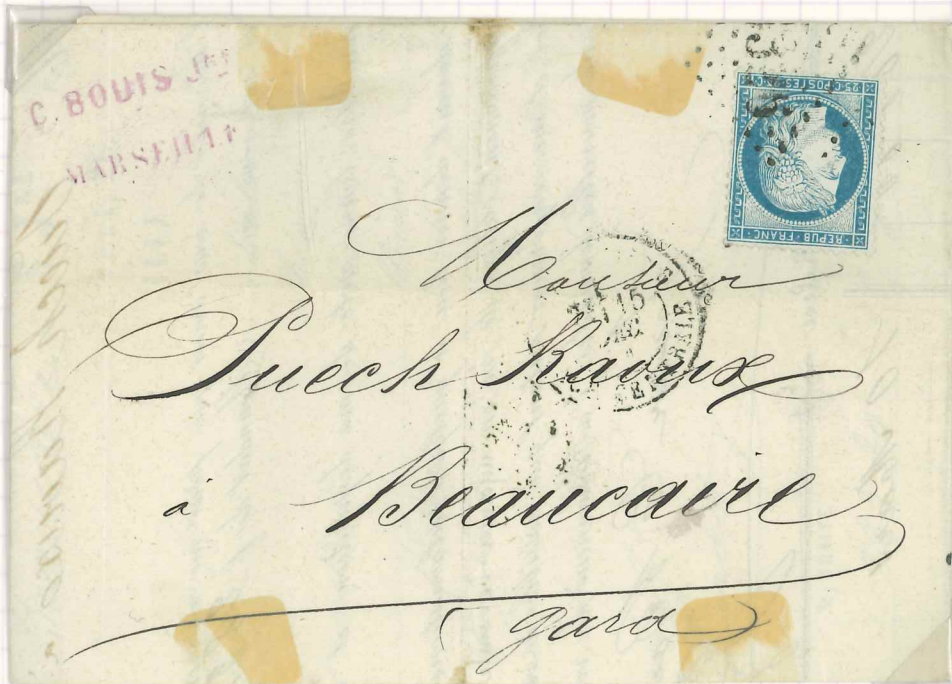 C. BOUIS Jne
MARSEILLE
25 C. POSTES 25 C.
REPUB. FRANC.
Monsieur
15
CENTRALE
Puech Raoux
à Beaucaire
(gard)